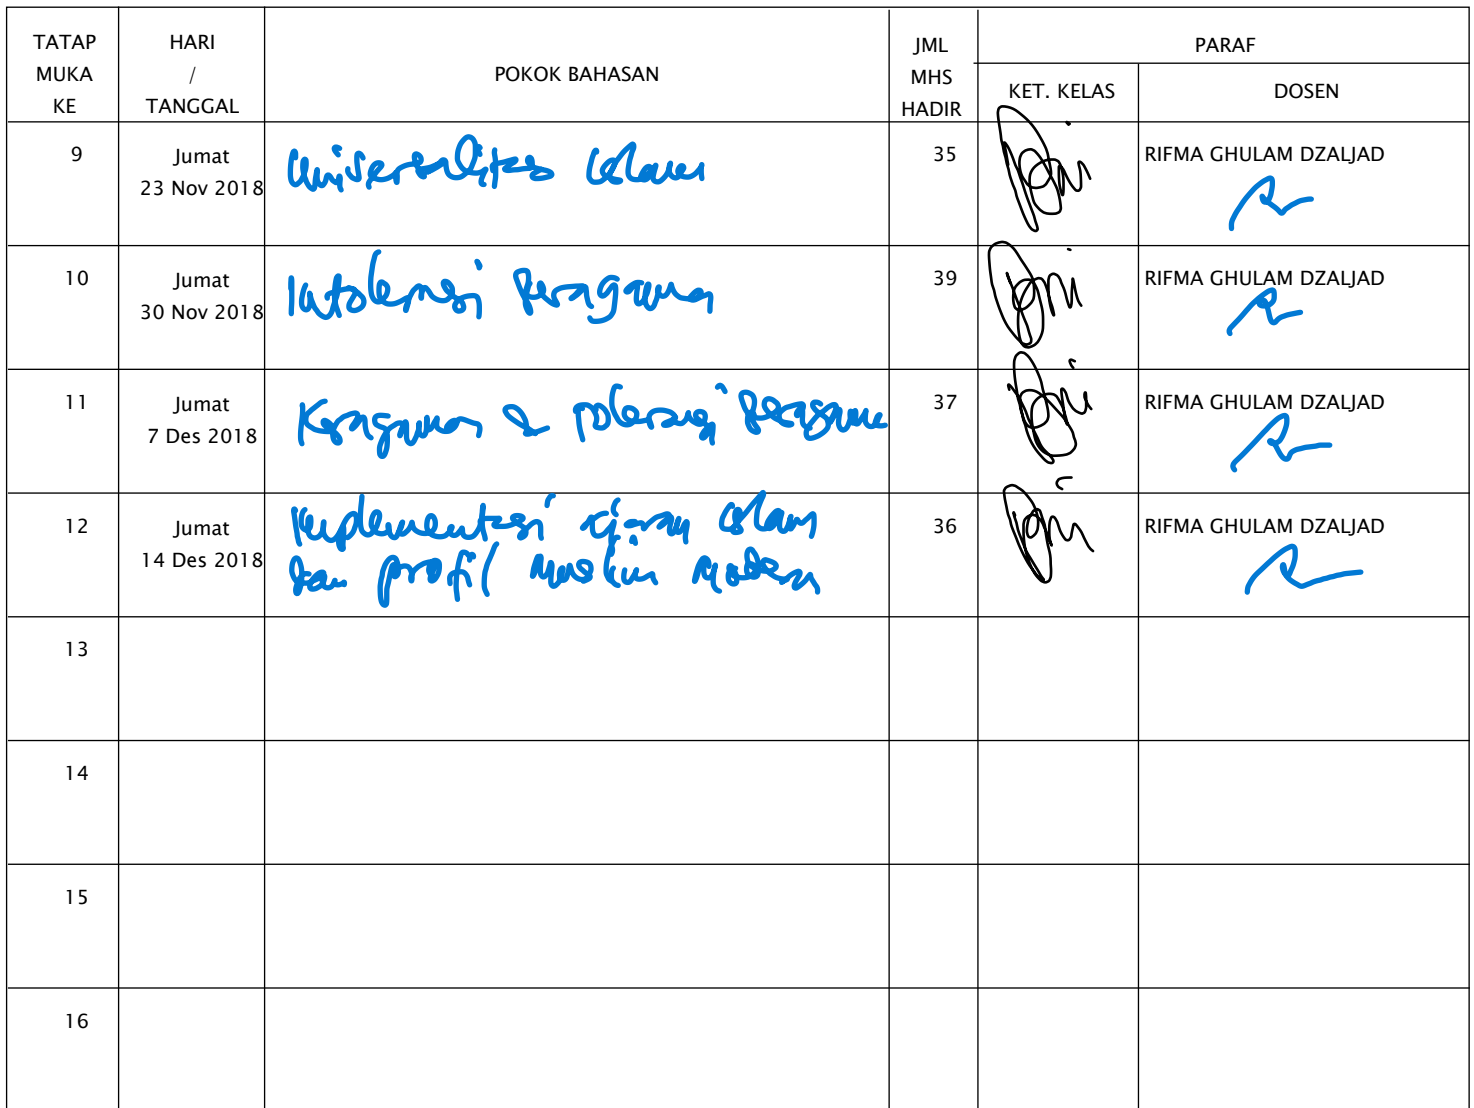 TATAP MUKA KE HARI / TANGGAL POKOK BAHASAN JML MHS HADIR PARAF
KET. KELAS DOSEN
9 Jumat 23 Nov 2018 Universalitas Islam 35 RIFMA GHULAM DZALJAD
10 Jumat 30 Nov 2018 Intoleransi Beragama 39 RIFMA GHULAM DZALJAD
11 Jumat 7 Des 2018 Keragaman & toleransi Beragama 37 RIFMA GHULAM DZALJAD
12 Jumat 14 Des 2018 Implementasi ajaran Islam 36 RIFMA GHULAM DZALJAD
dan profil muslim modern
13
14
15
16